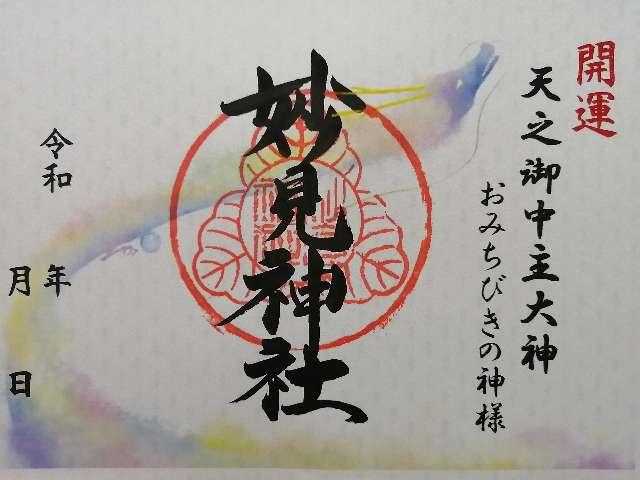 開運
天之御中主大神
おみちびきの神様
妙見神社
令和
年
月 日